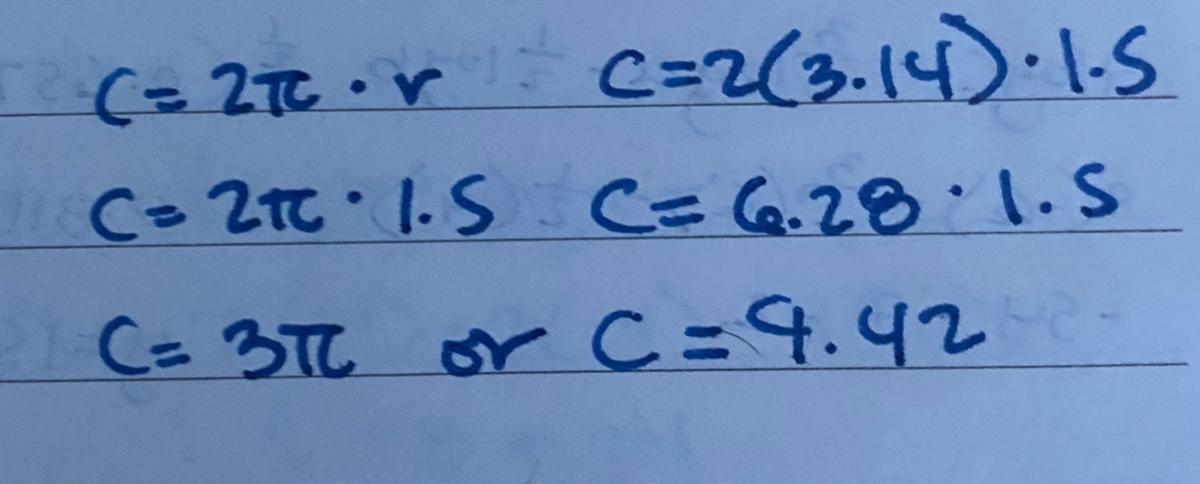 C = 2π · r C = 2(3.14) · 1.5
C = 2π · 1.5 C = 6.28 · 1.5
C = 3π or C = 9.42